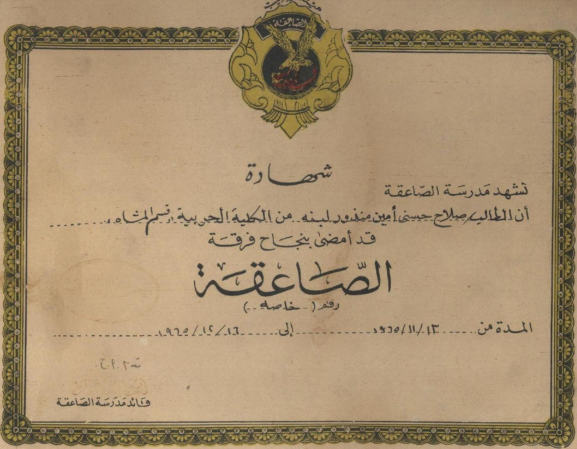 الصاعقة
شهادة
تشهد مدرسة الصاعقة
أن الطالب صلاح حسنى أمين مندور لبنه من الكلية الحربية قسم المشاه
قد أمضى بنجاح فرقة
الصّاعقة
رقم ( خاصه )
المدة من ١٩٦٥/١١/١٣ إلى ١٩٦٥/١٢/١٦
قائد مدرسة الصاعقة